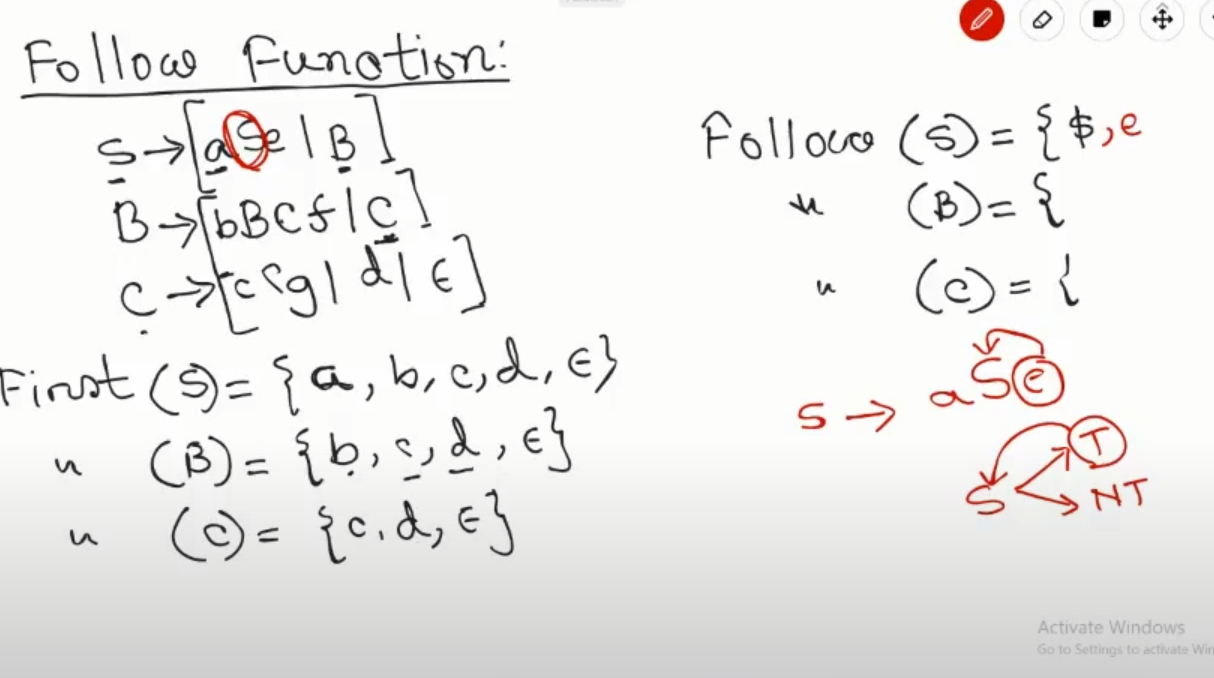 Follow Function:
S → [aSe | B]
B → [bBCf | C]
C → [cCg | d | ϵ]
First (S) = {a, b, c, d, ϵ}
" (B) = {b, c, d, ϵ}
" (C) = {c, d, ϵ}
Follow (S) = {$, e
" (B) = {
" (C) = {
S → aSe
T
S
NT
Activate Windows
Go to Settings to activate Win